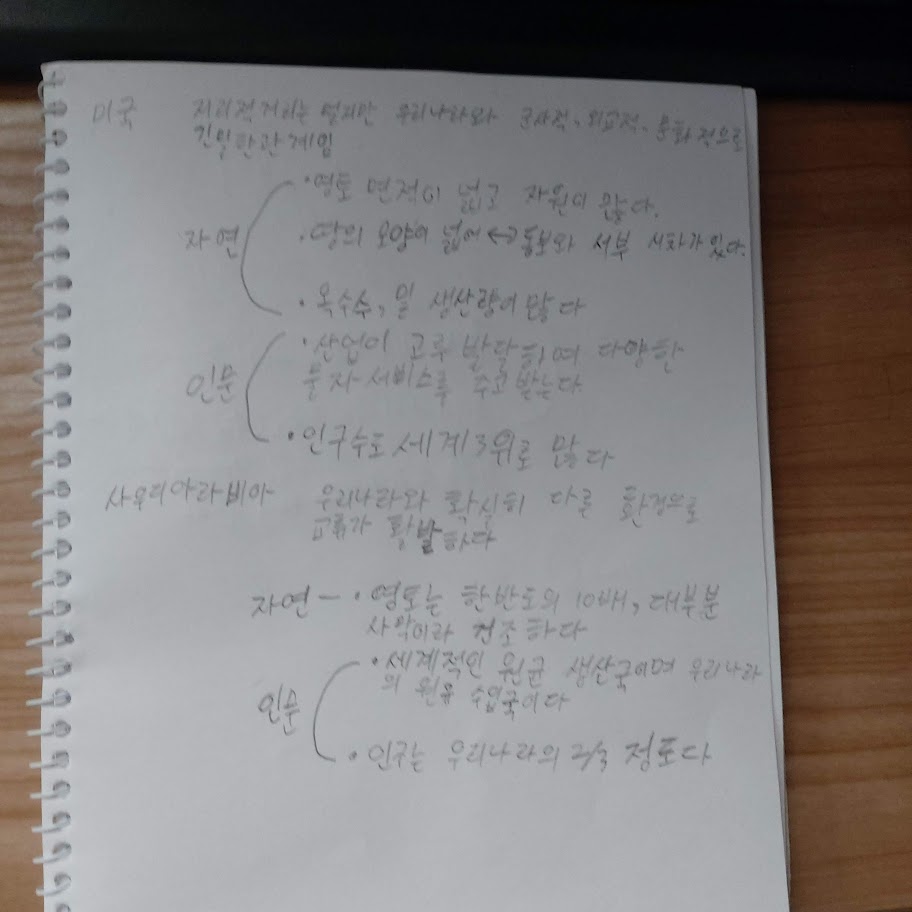 미국 지리적거리는 멀지만 우리나라와 군사적, 외교적, 문화적으로
긴밀한관계임
·영토 면적이 넓고 자원이 많다.
자연
·땅의 모양이 넓어↔동부와 서부 시차가있다.
·옥수수, 밀 생산량이 많다
·산업이 고루 발달하여 다양한
인문 물자서비스를 주고받는다.
·인구수도 세계3위로 많다
사우디아라비아 우리나라와 확실히 다른 환경으로
교류가 활발하다
자연 - ·영토는 한반도의 10배, 대부분
사막이라 건조하다
·세계적인 생산국이며 우리나라
의 원유 수입국이다
인문
·인구는 우리나라의 2/3 정도다